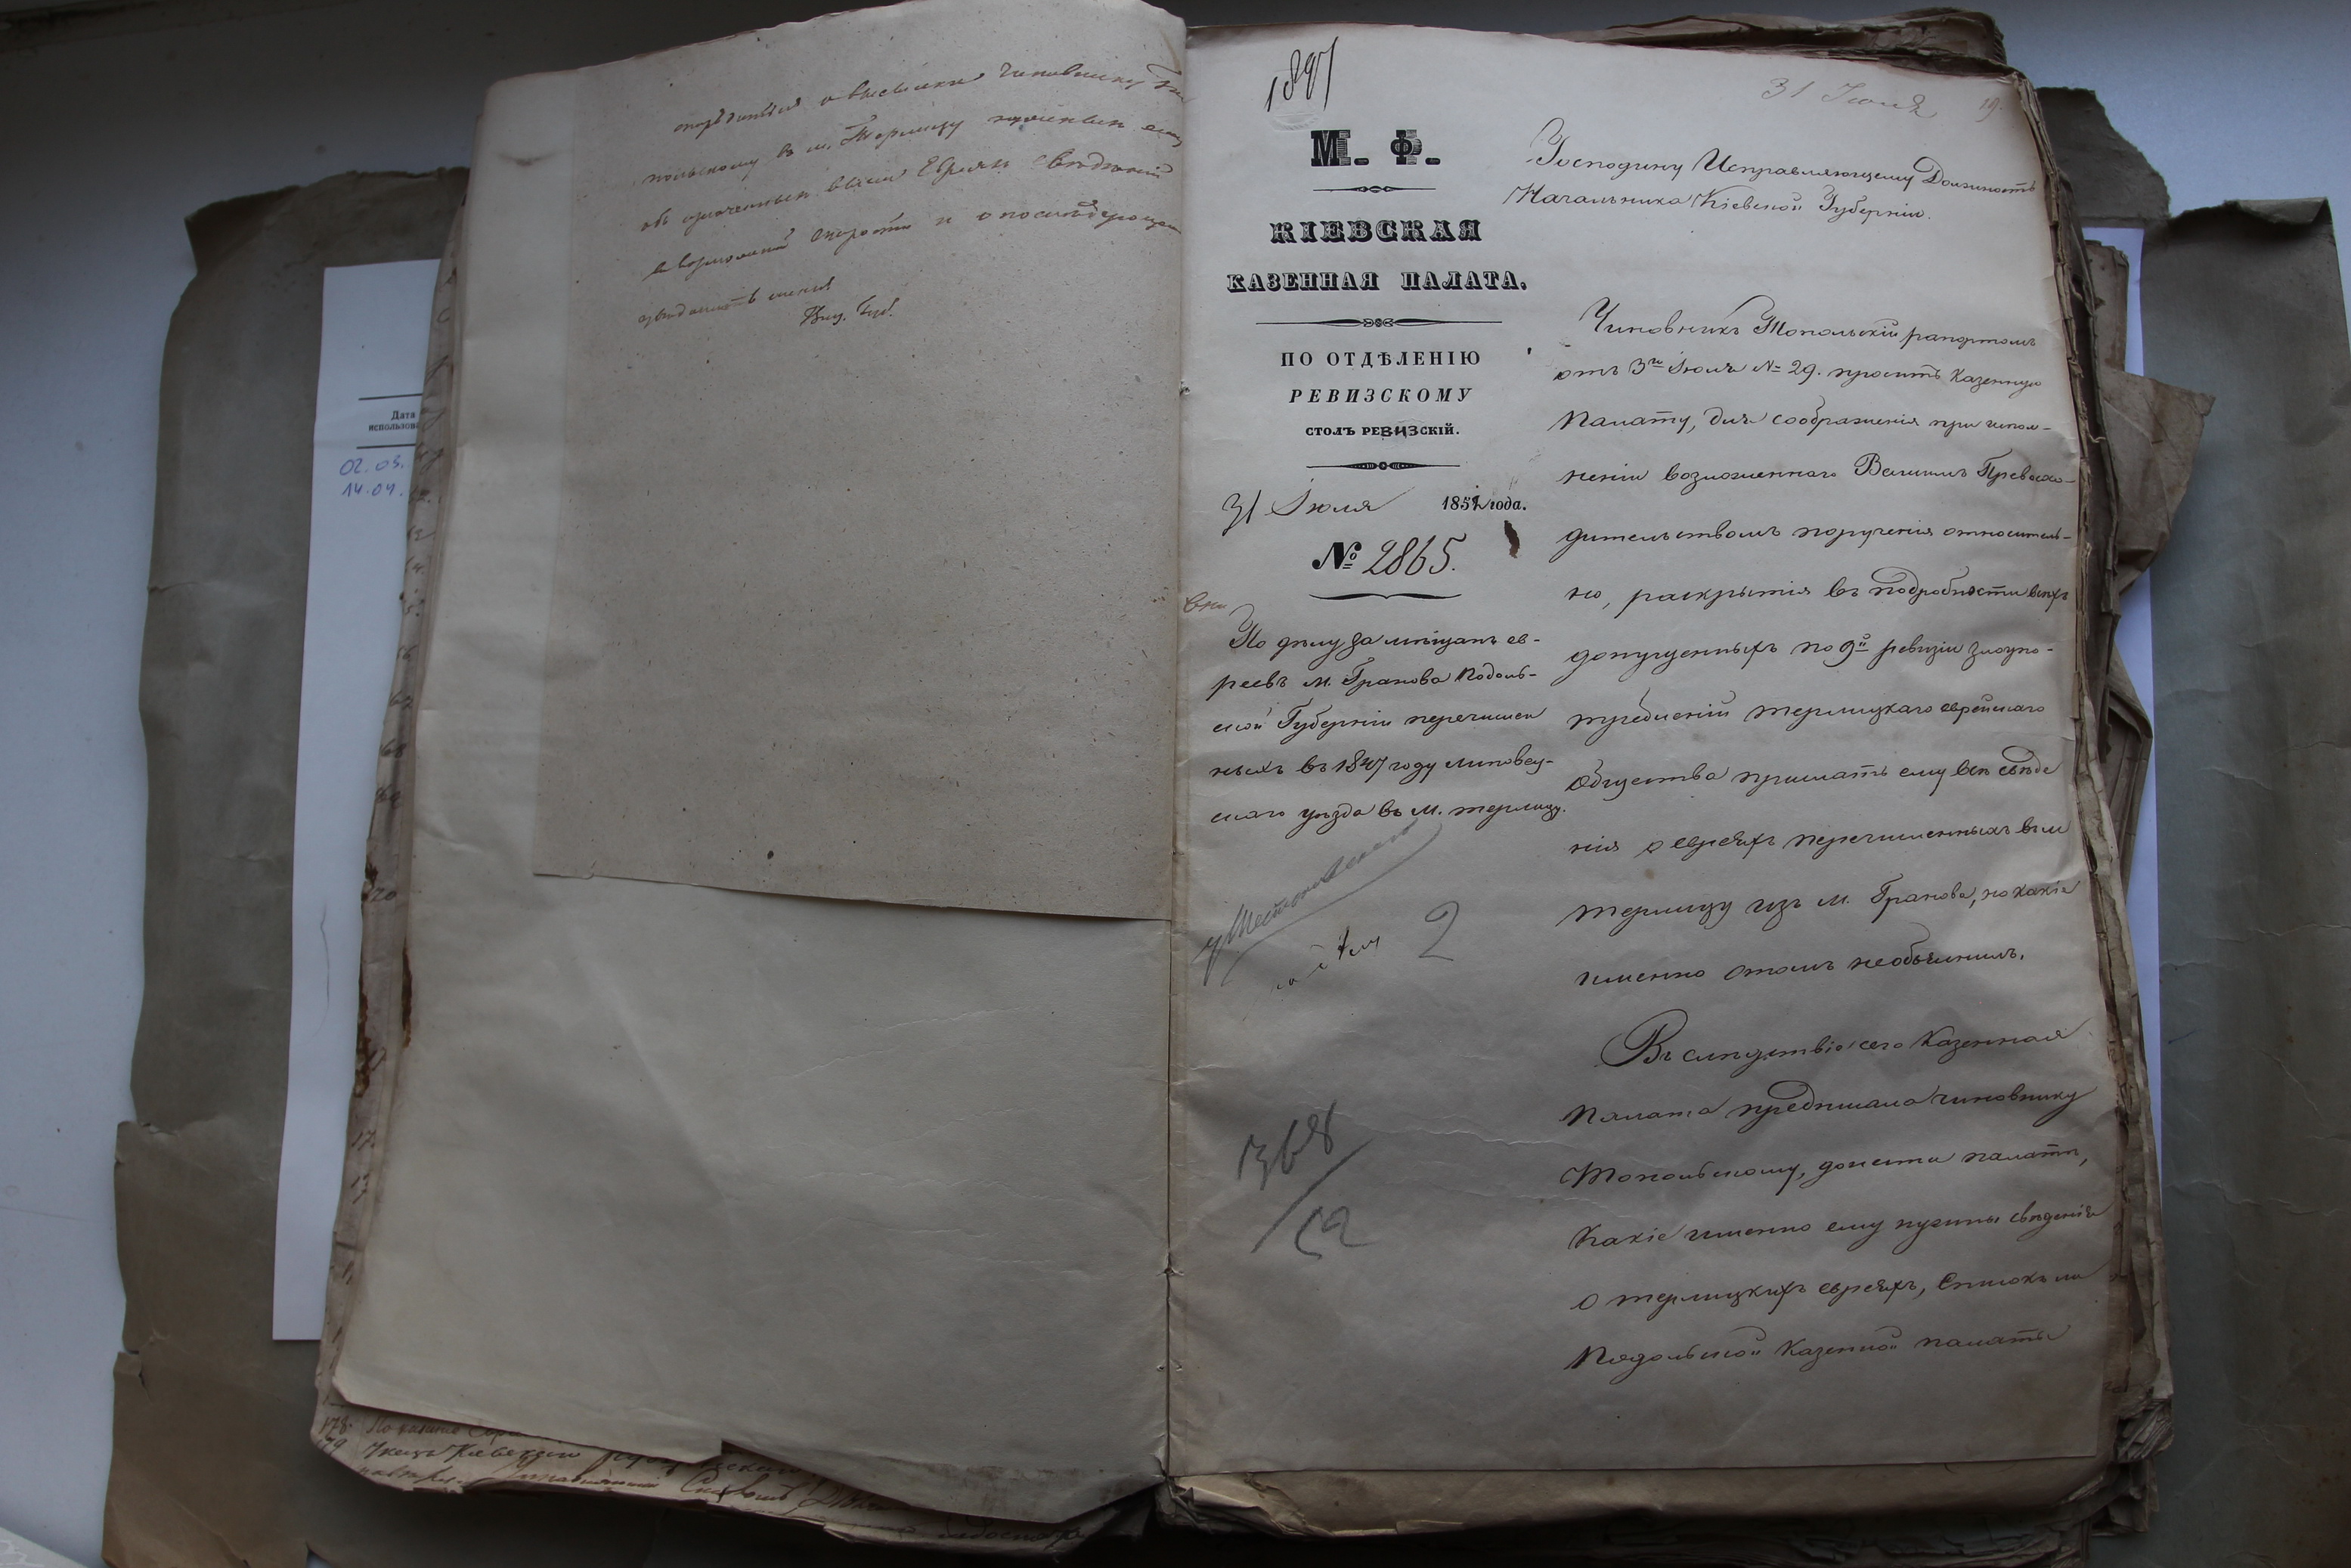 о высылке чиновнику
польскому в м. Терлицу
об означенных выше Евреях сведений
в возможной скорости и о последующем
уведомить меня
Виц. Губ.
Дата
использов
02.03.
14.04.
178.
179
1897
М. Ф.
КІЕВСКАЯ
КАЗЕННАЯ ПАЛАТА.
ПО ОТДѢЛЕНІЮ
РЕВИЗСКОМУ
СТОЛЪ РЕВИЗСКІЙ.
31 Іюля 1852 года.
№ 2865.
По дѣлу за мѣщанъ ев-
реевъ м. Гранова Подоль-
ской Губерніи перечислен
ныхъ въ 1847 году Липовец-
скаго уѣзда въ м. терлицу.
2
1368
52
31 Іюля
19.
Господину Исправляющему Должность
Начальника Кіевской Губерніи.
Чиновникъ Топольскій рапортомъ
отъ 3го Іюля № 29. проситъ Казенную
Палату, для соображенія при испол-
неніи возложеннаго Вашимъ Превосхо-
дительствомъ порученія относитель-
но, раскрытія въ подробности всехъ
допущенныхъ по 9й ревизіи злоупо-
требленій терлицкаго еврейскаго
общества прислать ему всѣ сведе
нія о евреяхъ перечисленныхъ въ м
терлицу изъ м. Гранова, но какіе
именно о томъ необъяснилъ.
Въ слѣдствіе сего Казенная
Палата предписала чиновнику
Топольскому, донести палатѣ,
какіе именно ему нужны сведенія
о терлицкихъ евреяхъ, списокъ ли
Подольской Казенной палаты